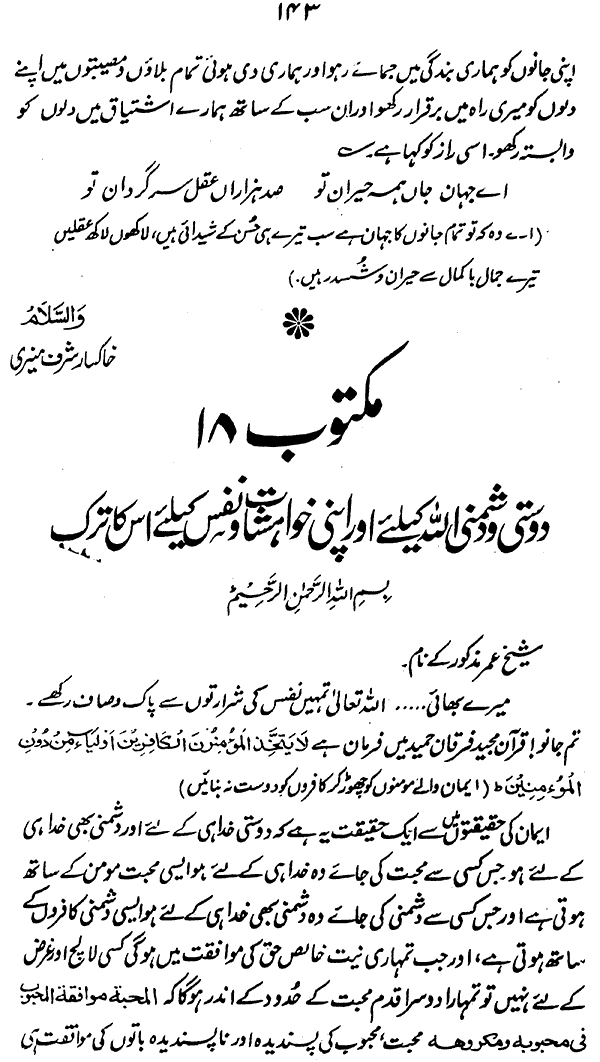 ۱۴۳
اپنی جانوں کو ہماری بندگی میں جمائے رہو اور ہماری دی ہوئی تمام بلاؤں و مصیبتوں میں اپنے
دلوں کو میری راہ میں برقرار رکھو اور ان سب کے ساتھ ہمارے اشتیاق میں دلوں کو
وابستہ رکھو۔ اسی راز کو کہا ہے۔
اے جہان جاں ہمہ حیران تو صد ہزاراں عقل سرگردان تو
(اے وہ کہ تو تمام جانوں کا جہان ہے سب تیرے ہی حُسن کے شیدائی ہیں، لاکھوں لاکھ عقلیں
تیرے جمال باکمال سے حیران و ششدر ہیں۔)
والسَّلام
خاکسار شرف منیری
مکتوب ۱۸
دوستی و دشمنی اللہ کیلئے اور اپنی خواہشات و نفس کیلئے اس کا ترک
بِسمِ اللہِ الرَّحمٰنِ الرَّحِیم
شیخ عمر مذکور کے نام۔
میرے بھائی..... اللہ تعالیٰ تمہیں نفس کی شرارتوں سے پاک و صاف رکھے۔
تم جانو! قرآن مجید فرقان حمید میں فرمان ہے لَا یَتَّخِذِ الْمُؤْمِنُوْنَ الْکَافِرِیْنَ اَوْلِیَاءَ مِنْ دُوْنِ
الْمُوءمِنِیْنَ ط (ایمان والے مومنوں کو چھوڑ کر کافروں کو دوست نہ بنائیں)
ایمان کی حقیقتوں میں سے ایک حقیقت یہ ہے کہ دوستی خدا ہی کے لئے اور دشمنی بھی خدا ہی
کے لئے ہو۔ جس کسی سے محبت کی جائے وہ خدا ہی کے لئے ہو ایسی محبت مومن کے ساتھ
ہوتی ہے اور جس کسی سے دشمنی کی جائے وہ دشمنی بھی خدا ہی کے لئے ہو ایسی دشمنی کافروں کے
ساتھ ہوتی ہے، اور جب تمہاری نیت خالص حق کی موافقت میں ہوگی کسی لالچ اور غرض
کے لئے نہیں تو تمہارا دوسرا قدم محبت کے حُدود کے اندر ہوگا کہ المحبة موافقة المحبوب
فی محبوبه ومکروهه محبت، محبوب کی پسندیدہ اور ناپسندیدہ باتوں کی موافقت ہی